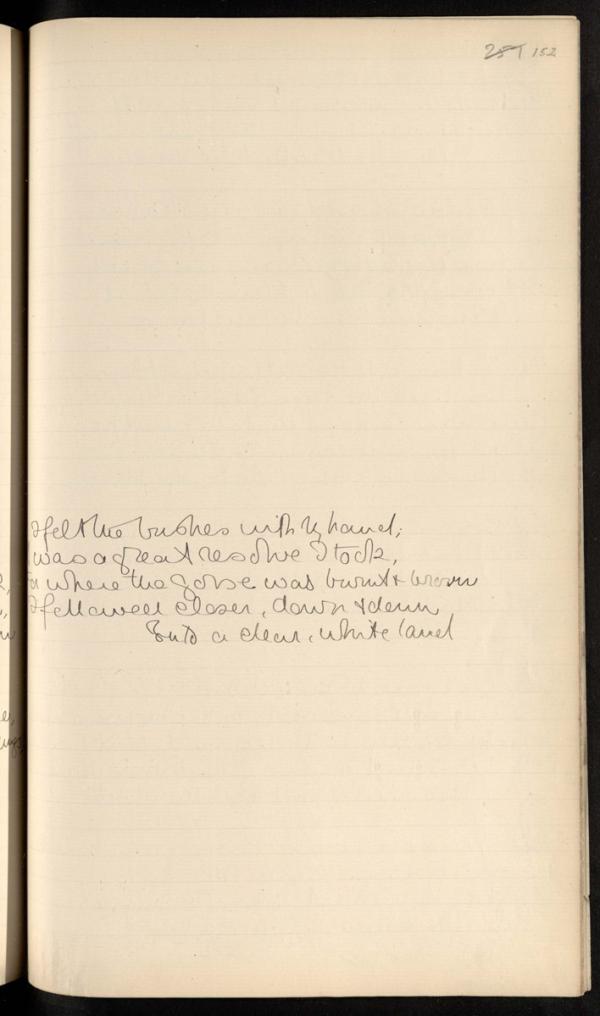 251 152
I felt the bushes with my hand;
was a great resolve I took,
where the gorse was burnt & brown
I fell a well closer, down & down
Into a clear, white land